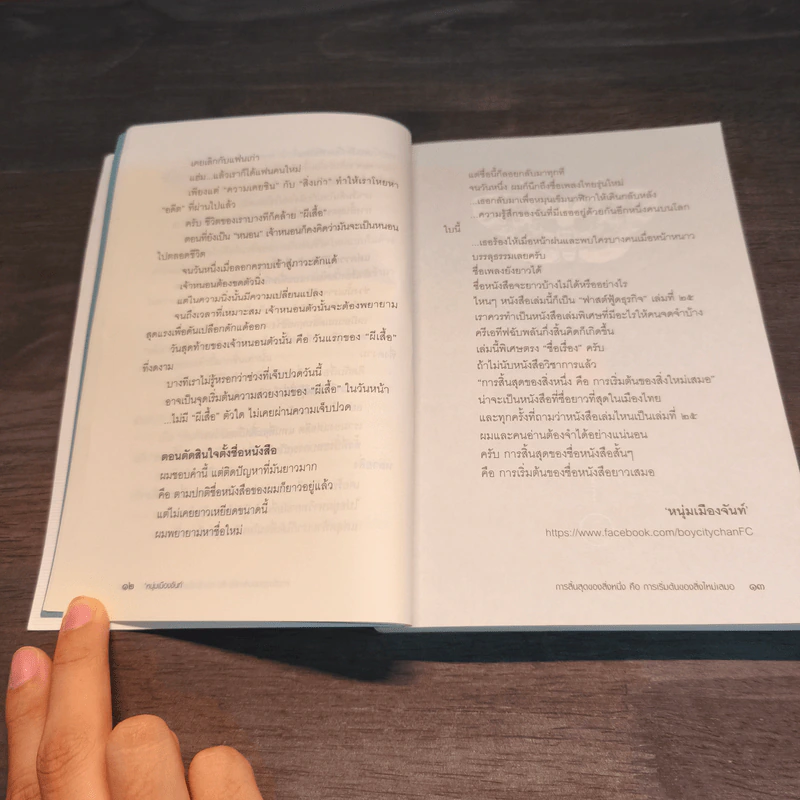 เคยเลิกกับแฟนเก่า
แฮ่ม...แล้วเราก็ได้แฟนคนใหม่
เพียงแต่ "ความเคยชิน" กับ "สิ่งเก่า" ทำให้เราโหยหา
"อดีต" ที่ผ่านไปแล้ว
ครับ ชีวิตของเราบางทีก็คล้าย "ผีเสื้อ"
ตอนที่ยังเป็น "หนอน" เจ้าหนอนก็คงคิดว่ามันจะเป็นหนอน
ไปตลอดชีวิต
จนวันหนึ่งเมื่อลอกคราบเข้าสู่ภาวะดักแด้
เจ้าหนอนต้องขดตัวนิ่ง
แต่ในความนิ่งนั้นมีความเปลี่ยนแปลง
จนถึงเวลาที่เหมาะสม เจ้าหนอนตัวนั้นจะต้องพยายาม
สุดแรงเพื่อดันเปลือกดักแด้ออก
วันสุดท้ายของเจ้าหนอนตัวนั้น คือ วันแรกของ "ผีเสื้อ"
ที่งดงาม
บางทีเราไม่รู้หรอกว่าช่วงที่เจ็บปวดวันนี้
อาจเป็นจุดเริ่มต้นความสวยงามของ "ผีเสื้อ" ในวันหน้า
...ไม่มี "ผีเสื้อ" ตัวใด ไม่เคยผ่านความเจ็บปวด
ตอนตัดสินใจตั้งชื่อหนังสือ
ผมชอบคำนี้ แต่ติดปัญหาที่มันยาวมาก
คือ ตามปกติชื่อหนังสือของผมก็ยาวอยู่แล้ว
แต่ไม่เคยยาวเหยียดขนาดนี้
ผมพยายามหาชื่อใหม่
๑๒ 'หนุ่มเมืองจันท์'
แต่ชื่อนี้ก็ลอยกลับมาทุกที
จนวันหนึ่ง ผมก็นึกถึงชื่อเพลงไทยรุ่นใหม่
...เธอกลับมาเพื่อหมุนเข็มนาฬิกาให้เดินกลับหลัง
...ความรู้สึกของฉันที่มีเธออยู่ด้วยกันอีกหนึ่งคนบนโลก
ใบนี้
...เธอร้องไห้เมื่อหน้าฝนและพบใครบางคนเมื่อหน้าหนาว
บรรลุธรรมเลยครับ
ชื่อเพลงยังยาวได้
ชื่อหนังสือจะยาวบ้างไม่ได้หรืออย่างไร
ไหนๆ หนังสือเล่มนี้ก็เป็น "ฟาสต์ฟู้ดธุรกิจ" เล่มที่ ๒๕
เราควรทำเป็นหนังสือเล่มพิเศษที่มีอะไรให้คนจดจำบ้าง
ครีเอทีฟฉับพลันกึ่งสิ้นคิดก็เกิดขึ้น
เล่มนี้พิเศษตรง "ชื่อเรื่อง" ครับ
ถ้าไม่นับหนังสือวิชาการแล้ว
"การสิ้นสุดของสิ่งหนึ่ง คือ การเริ่มต้นของสิ่งใหม่เสมอ"
น่าจะเป็นหนังสือที่ชื่อยาวที่สุดในเมืองไทย
และทุกครั้งที่ถามว่าหนังสือเล่มไหนเป็นเล่มที่ ๒๕
ผมและคนอ่านต้องจำได้อย่างแน่นอน
ครับ การสิ้นสุดของชื่อหนังสือสั้นๆ
คือ การเริ่มต้นของชื่อหนังสือยาวเสมอ
'หนุ่มเมืองจันท์'
https://www.facebook.com/boycitychanFC
การสิ้นสุดของสิ่งหนึ่ง คือ การเริ่มต้นของสิ่งใหม่เสมอ ๑๓